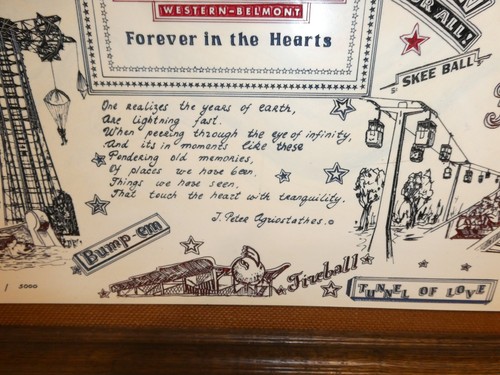 WESTERN-BELMONT
Forever in the Hearts
OR ALL!
SKEE BALL
One realizes the years of earth,
Are lightning fast.
When peering through the eye of infinity,
And its in moments like these
Pondering old memories,
Of places we have been,
Things we have seen,
That touch the heart with tranquility.
J. Peter Agriostathes.
Bump-em
Fireball
TUNNEL OF LOVE
/ 5000